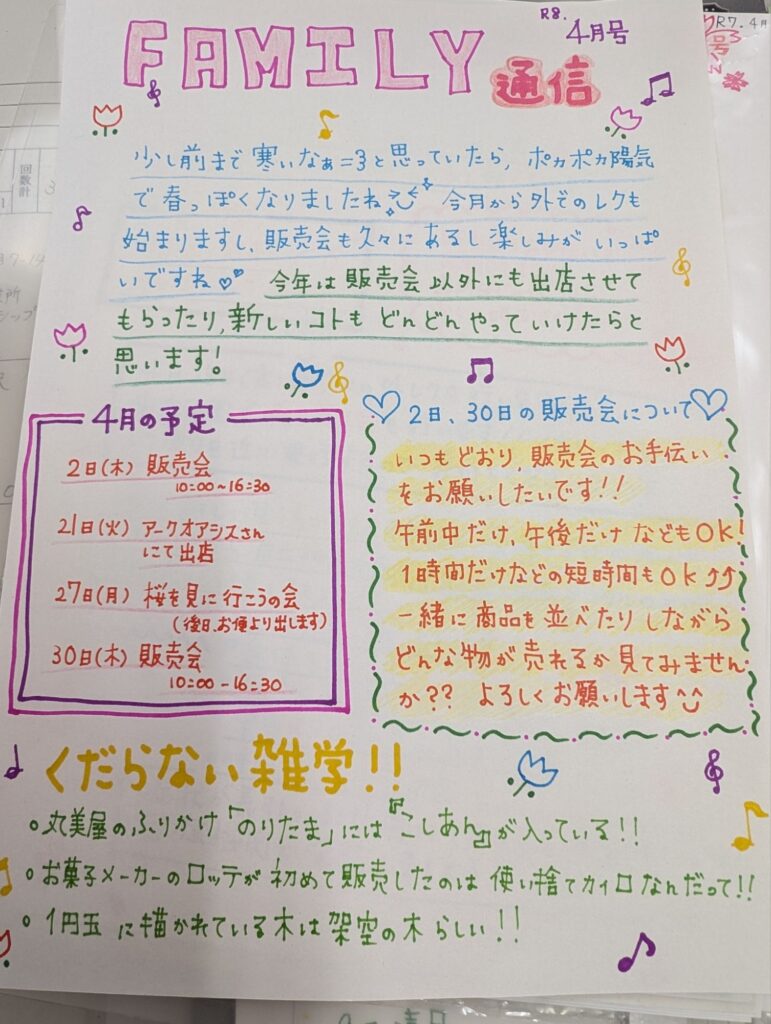 R8. 4月号
FAMILY 通信
少し前まで寒いなぁ=3と思っていたら、ポカポカ陽気
で春っぽくなりましたね 今月から外でのレクも
始まりますし、販売会も久々にあるし楽しみがいっぱ
いですね♡♡ 今年は販売会以外にも出店させて
もらったり、新しいコトもどんどんやっていけたらと
思います!
4月の予定
2日(木) 販売会
10:00~16:30
21日(火) アークオアシスさん
にて出店
27日(月) 桜を見に行こうの会
(後日、お便り出します)
30日(木) 販売会
10:00-16:30
2日、30日の販売会について
いつもどおり、販売会のお手伝い
をお願いしたいです!!
午前中だけ、午後だけなどもOK!
1時間だけなどの短時間もOK⤴⤴
一緒に商品を並べたりしながら
どんな物が売れるか見てみません
か?? よろしくお願いします
くだらない雑学!!
○丸美屋のふりかけ「のりたま」には『こしあん』が入っている!!
○お菓子メーカーのロッテが初めて販売したのは使い捨てカイロなんだって!!
○1円玉に描かれている木は架空の木らしい!!
R7. 4月
号
回数計